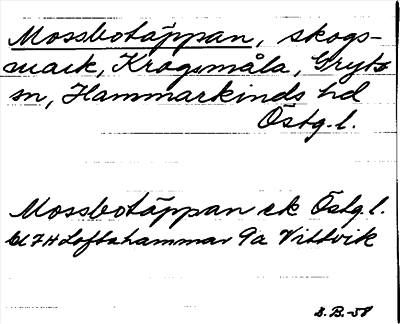 Mossbotäppan, skogs-
mark, Krogsmåla, Gryts
sn, Hammarkinds hd
Östg. l.
Mossbotäppan ek Östg. l.
bl 7H Loftahammar 9a Vittvik
S.B.-58